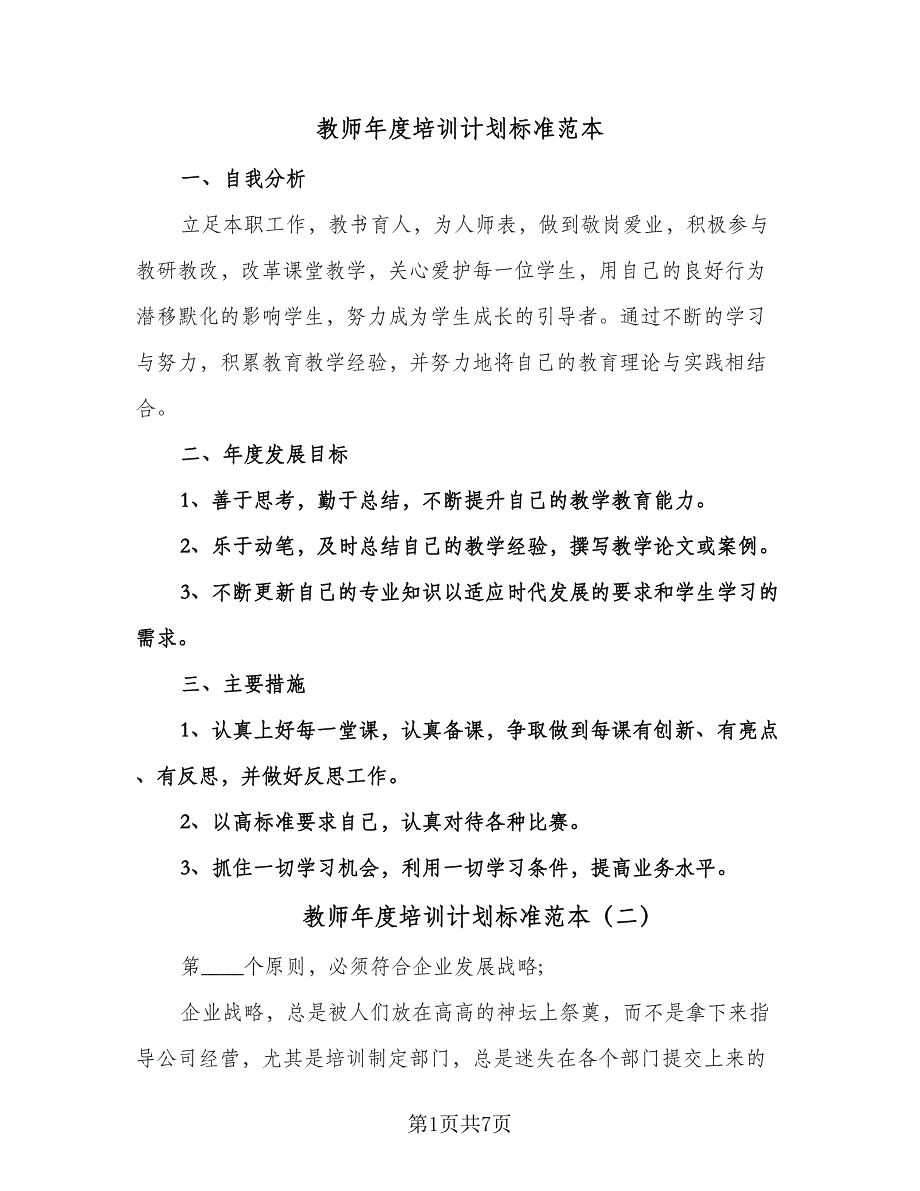 教师年度培训计划标准范本
一、自我分析
立足本职工作，教书育人，为人师表，做到敬岗爱业，积极参与
教研教改，改革课堂教学，关心爱护每一位学生，用自己的良好行为
潜移默化的影响学生，努力成为学生成长的引导者。通过不断的学习
与努力，积累教育教学经验，并努力地将自己的教育理论与实践相结
合。
二、年度发展目标
1、善于思考，勤于总结，不断提升自己的教学教育能力。
2、乐于动笔，及时总结自己的教学经验，撰写教学论文或案例。
3、不断更新自己的专业知识以适应时代发展的要求和学生学习的
需求。
三、主要措施
1、认真上好每一堂课，认真备课，争取做到每课有创新、有亮点
、有反思，并做好反思工作。
2、以高标准要求自己，认真对待各种比赛。
3、抓住一切学习机会，利用一切学习条件，提高业务水平。
教师年度培训计划标准范本（二）
第____个原则，必须符合企业发展战略;
企业战略，总是被人们放在高高的神坛上祭奠，而不是拿下来指
导公司经营，尤其是培训制定部门，总是迷失在各个部门提交上来的
第1页共7页